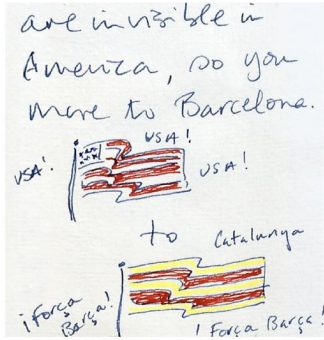 are invisible in
America, so you
move to Barcelona.
USA!
USA!
USA!
to
Catalunya
¡Força
Barça!
¡Força Barça!